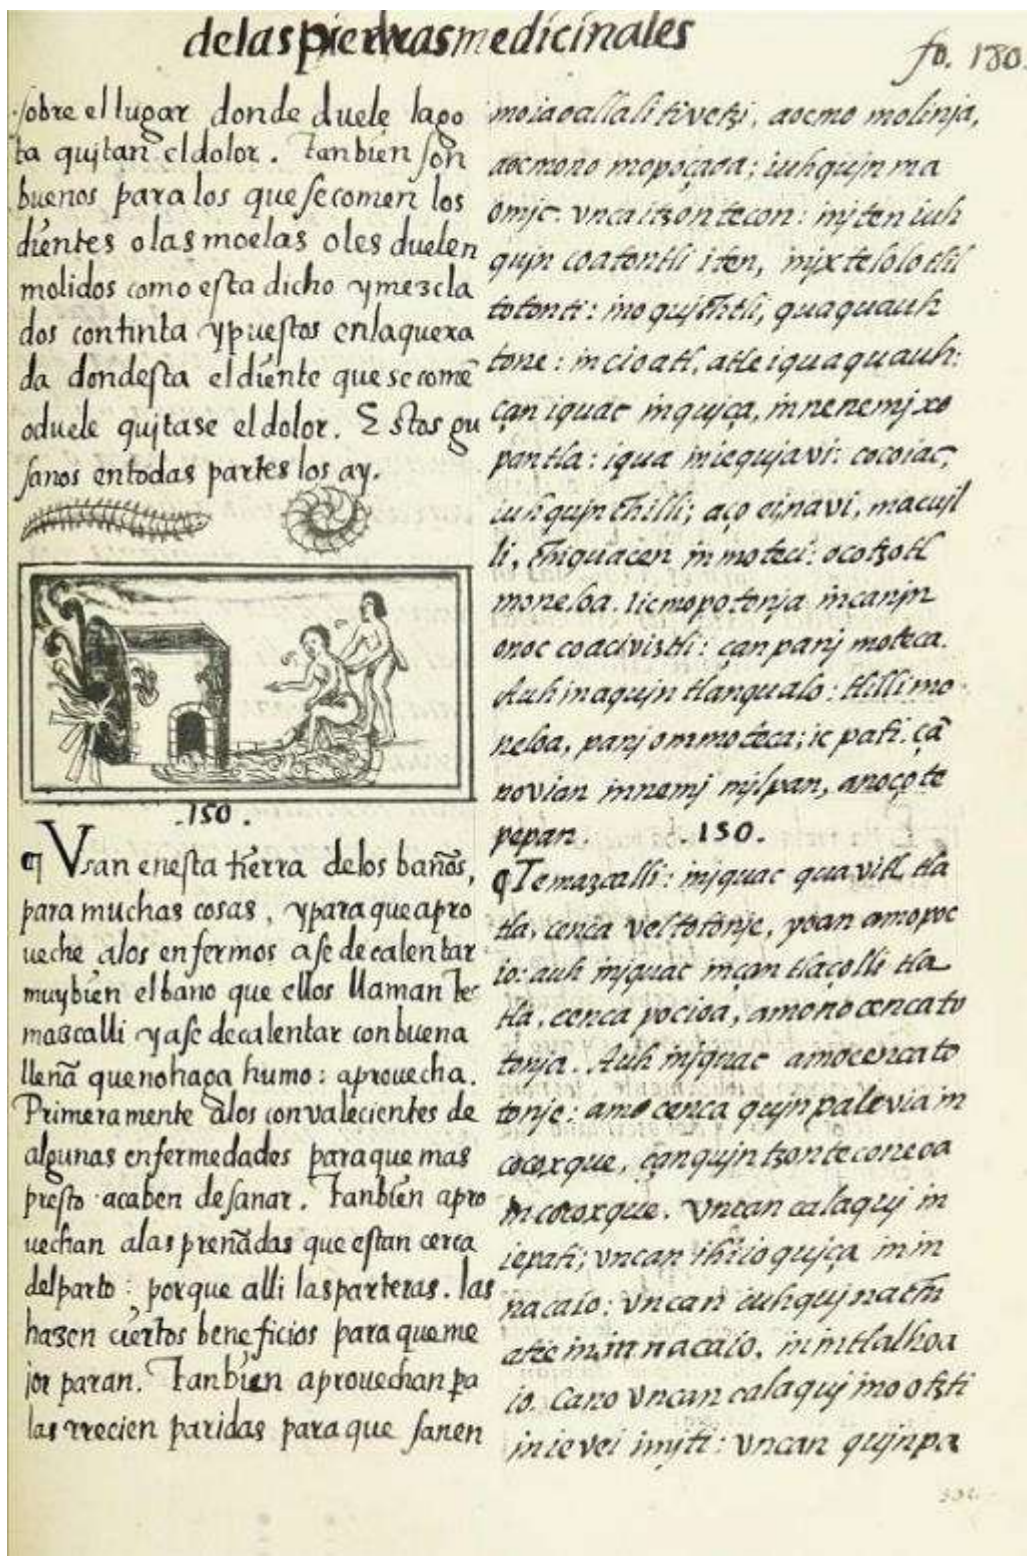 delaspiedrasmedicinales
fo. 180.
sobre el lugar donde duele la go
ta quitan el dolor. Tanbien son
buenos para los que se comen los
dientes o las moelas o les duelen
molidos como esta dicho y mezcla
dos con tinta y puestos en la quexa
da dondesta el diente que se comē
o duele quitase el dolor. Estos gu
sanos en todas partes los ay.
.150.
¶ Vsan en esta tierra de los baños,
para muchas cosas, y para que apro
ueche a los enfermos ase de calentar
muy bien el baño que ellos llaman te
mazcalli y a se de calentar con buena
lleña que no haga humo: aprouecha.
Primeramente a los convalecientes de
algunas enfermedades para que mas
presto acaben de sanar. Tanbien apro
uechan a las preñadas que estan cerca
del parto: porque alli las parteras. las
hazen ciertos beneficios para que me
jor paran. Tanbien aprouechan pa
las rrecien paridas para que sanen
moiaoallali tivetzi, aocmo molinja,
aocmono mopoçaoa; iuhqujn ma
omjc. vnca itzontecon: injten iuh
qujn coatontli iten, injxtelolo tlil
totonti: in oqujchtli, quaquauh
tone: in cioatl, atle iquaquauh:
çan iquac in qujça, in nenemj xo
pantla: iqua in iequjavi: cocoiac,
iuhqujn chilli; aço ei, navi, macujl
li, chiquacen in moteci: ocotzotl
moneloa. Ic mopotonja in canjn
onoc coacivistli: çan panj moteca.
Auh in aqujn tlanqualo: tlilli mo
neloa, panj ommoteca; ic pati. çā
novian in nemj mjlpan, anoço te
pepan. .150.
¶ Temazcalli: injquac quavitl tla
tla, cenca vel totonje, yoan amo poc
io: auh injquac in çan tlaçolli tla
tla, cenca pocioa, amono cenca to
tonja. Auh injquac amo cenca to
tonje: amo cenca qujnpalevia in
cocoxque, çan qujntzonteconeoa
in cocoxque. Vncan calaquj in
iepati; vncan ihiio qujça in in
nacaio: vncan iuhquj nach
atic in in nacaio, in intlalhoa
io. Cano vncan calaquj in ootzti
in ie vei imjti: vncan qujnpa